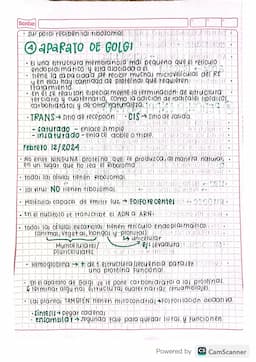 • sur poral reciben los ribosomas
④ APARATO DE GOLGI
• Es una estructura membranosa más pequeña que el retículo
endoplasmático y está asociada a él
• Tiene la capacidad de recibir muchas microvesículas del RE
y en ellas hay cantidad de proteínas que requieren
tratamiento
• En él se realizan especialmente la terminación de estructura
terciaria y cuaternaria, como la adición de radicales lipídicos,
carbohidratos y de otra naturaleza.
• TRANS → Sitio de recepción • CIS → Sitio de salida
• saturado - enlace simple
• insaturado - enlace doble o triple.
Febrero 12/2024
• No existe ninguna proteína que se produzca de manera natural
en un lugar que no sea el ribosoma
• Todas las células tienen ribosomas
• Los virus NO tienen ribosomas
• Moléculas capaces de emitir luz → Fosforescentes
• En el núcleo se transcribe el ADN a ARN
• Todas las células eucariotas, tienen retículo endoplasmático
(animal, vegetal, hongos y protistas)
↳ unicelular
Multicelulares/
Pluricelulares
Ej: levadura
• Hemoglobina → + de 1 estructura/secuencia para ser
una proteína funcional
• En el aparato de Golgi se le pone carbohidratos a las proteínas
& termina algunas estructuras cuaternarias (ensamblar)
• Las plantas TAMBIÉN tienen mitocondrias → Fosforilación oxidativa
• Síntesis → pegar cadenas
• Ensamblar → Segunda fase para quedar listas y funcionen
Powered by CS CamScanner